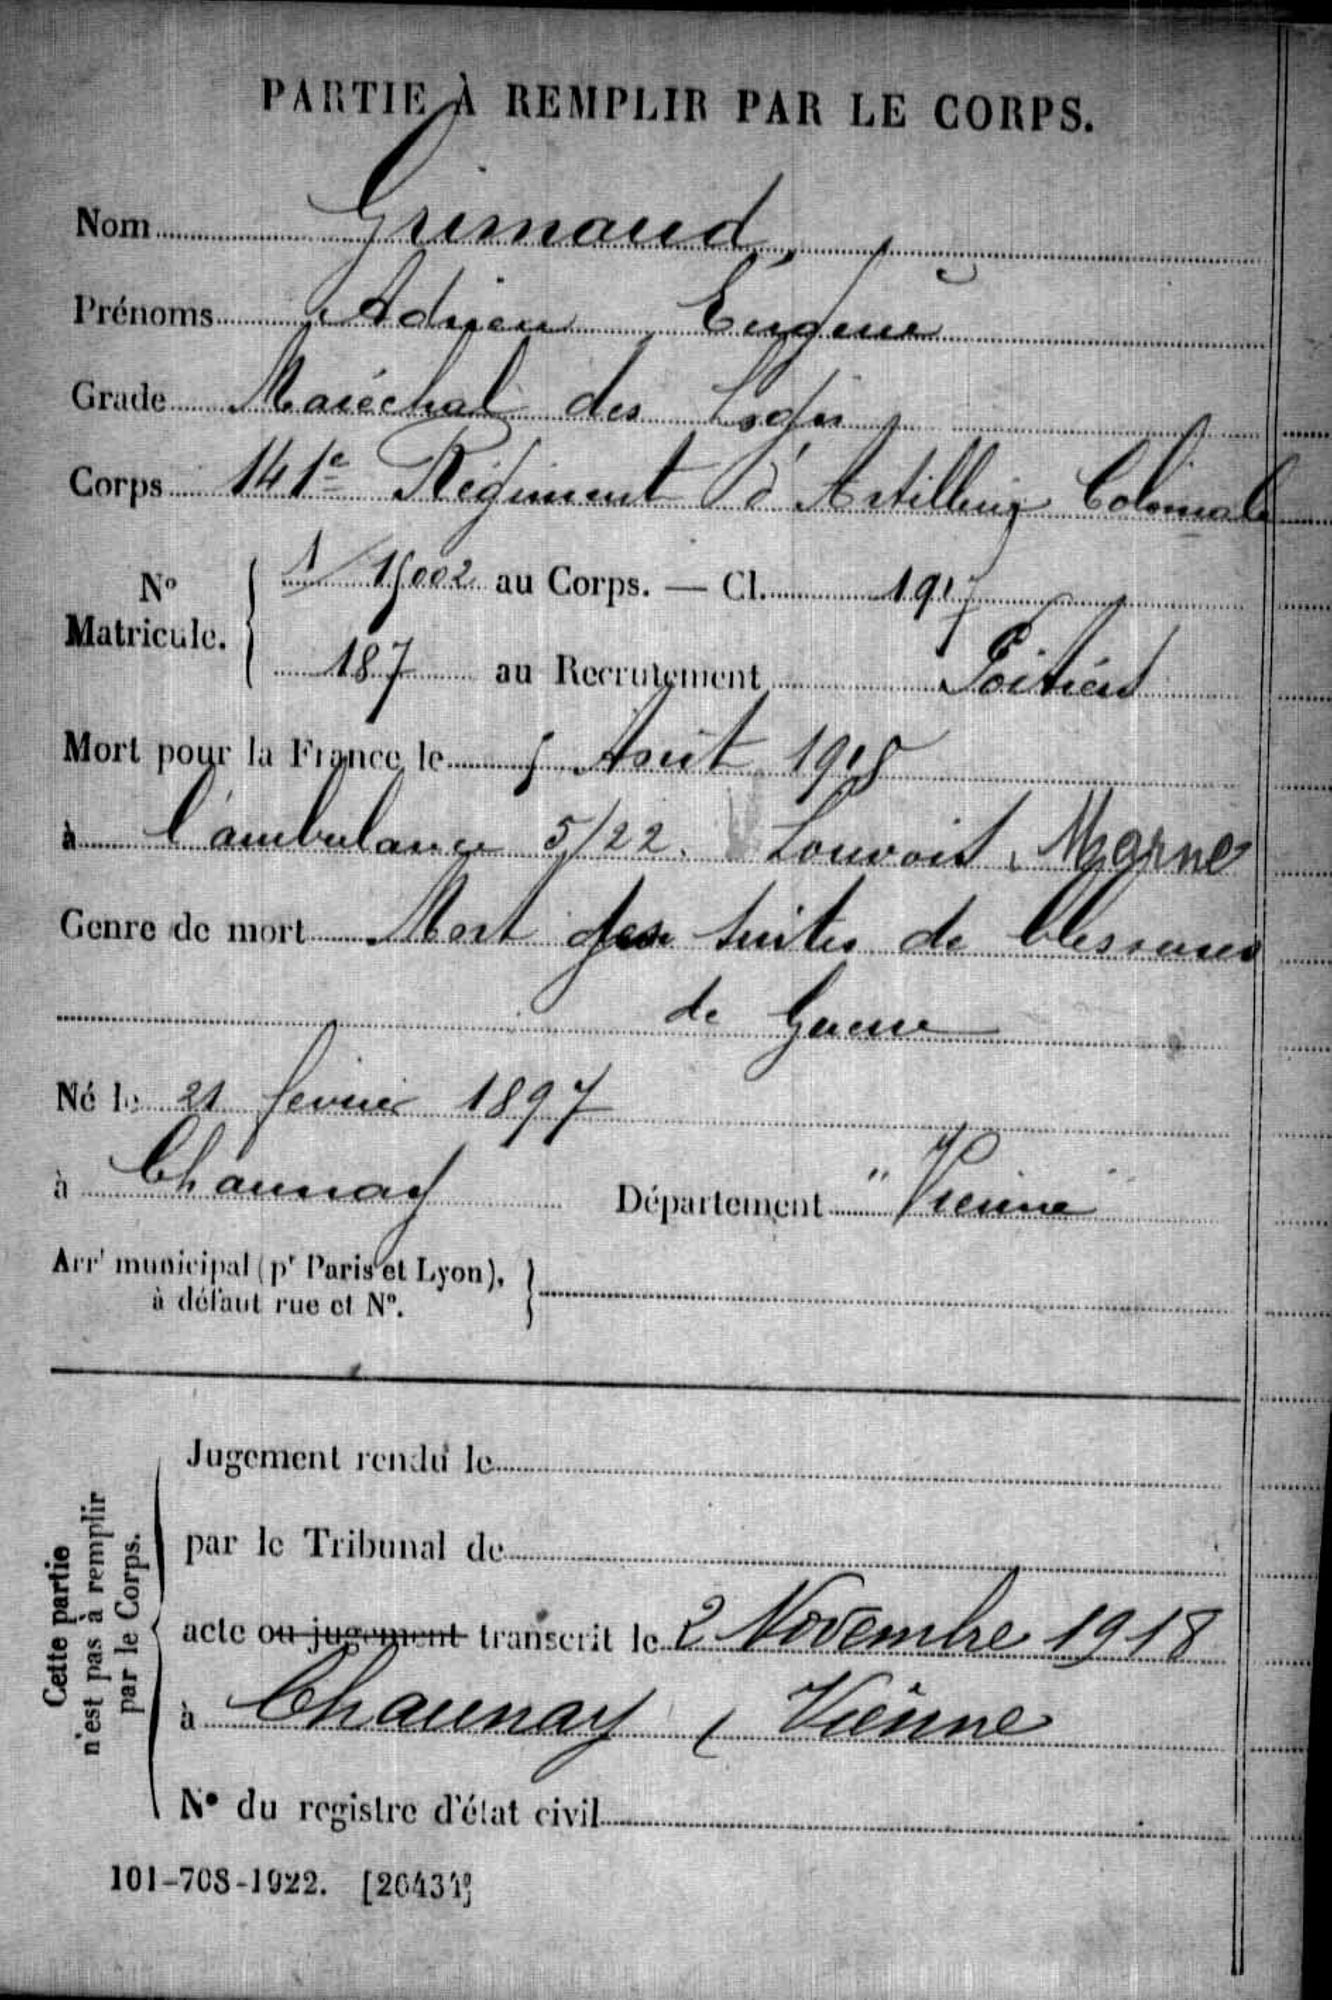 PARTIE À REMPLIR PAR LE CORPS.
Nom Grimaud,
Prénoms Adrien Eugène
Grade Maréchal des Logis
Corps 141e Régiment d'Artillerie Coloniale
No Matricule. 1/15002 au Corps. — Cl. 1917
187 au Recrutement Poitiers
Mort pour la France le 5 Août 1918
à l'ambulance 5/22. Louvois, Marne
Genre de mort Mort des suites de blessures
de Guerre
Né le 21 février 1897
à Chaunay Département " Vienne
Arrt municipal (pr Paris et Lyon),
à défaut rue et No.
Cette partie
n'est pas à remplir
par le Corps.
Jugement rendu le
par le Tribunal de
acte ou jugement transcrit le 2 Novembre 1918
à Chaunay ( Vienne
No du registre d'état civil
101-708-1922. [26434]